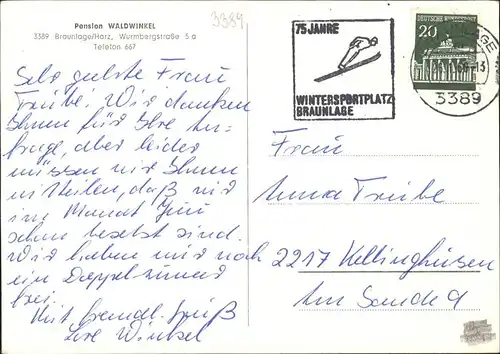 Pension WALDWINKEL
3389 Braunlage/Harz, Wurmbergstraße 5a
Telefon 667
3389
Sehr geehrte Frau
Trube! Wir danken
Ihnen für Ihre An-
frage, aber leider
müssen wir Ihnen
mitteilen, daß wir
im Monat Juni
schon besetzt sind.
Wir haben nur noch
ein Doppelzimmer
frei.
Mit freundl. Gruß
Ihre
75 JAHRE
WINTERSPORTPLATZ
BRAUNLAGE
DEUTSCHE BUNDESPOST
20
3389
Frau
Anna Trube
2217 Kellinghusen
Am Sande 9